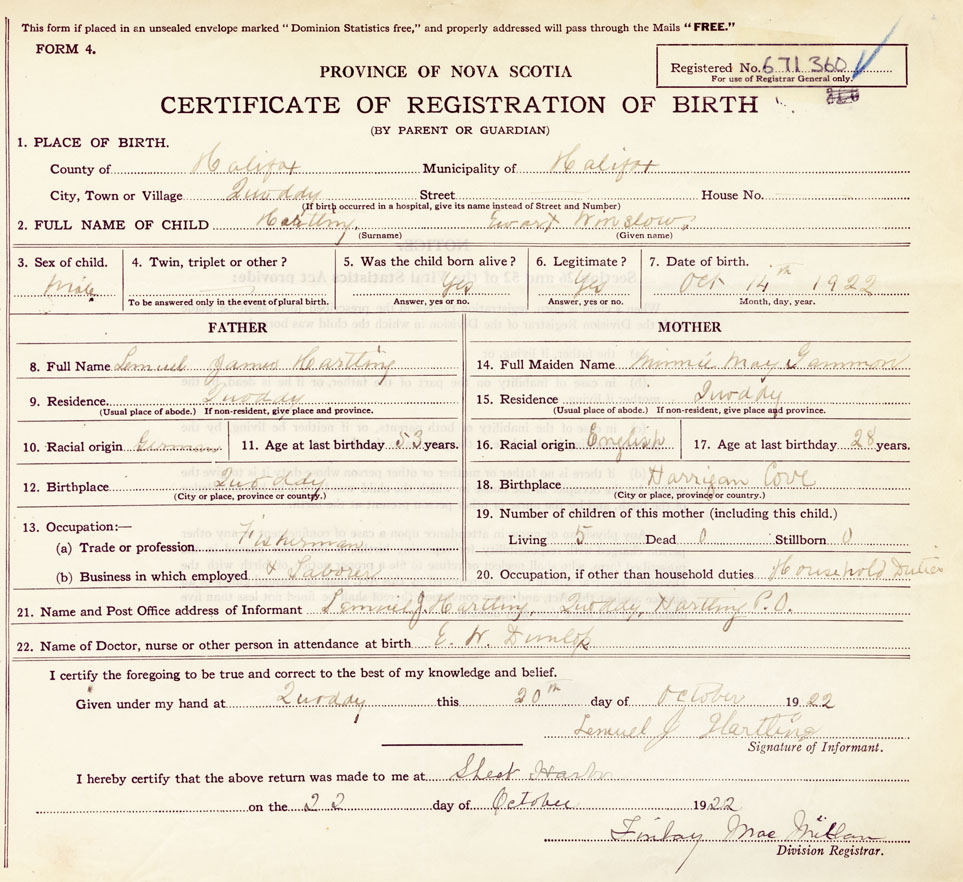 This form if placed in an unsealed envelope marked "Dominion Statistics free," and properly addressed will pass through the Mails "FREE."
FORM 4.
Registered No. 671360
For use of Registrar General only.
PROVINCE OF NOVA SCOTIA
CERTIFICATE OF REGISTRATION OF BIRTH
(BY PARENT OR GUARDIAN)
1. PLACE OF BIRTH.
County of Halifax Municipality of Halifax
City, Town or Village Quoddy Street House No.
(If birth occurred in a hospital, give its name instead of Street and Number)
2. FULL NAME OF CHILD Hartling, Ewart Winslow.
(Surname) (Given name)
3. Sex of child. 4. Twin, triplet or other? 5. Was the child born alive? 6. Legitimate? 7. Date of birth.
Male Yes Yes Oct 14th 1922
To be answered only in the event of plural birth. Answer, yes or no. Answer, yes or no. Month, day, year.
FATHER MOTHER
8. Full Name Lemuel James Hartling 14. Full Maiden Name Minnie May Gammon
9. Residence. Quoddy 15. Residence Quoddy
(Usual place of abode.) If non-resident, give place and province. (Usual place of abode.) If non-resident, give place and province.
10. Racial origin German 11. Age at last birthday 53 years. 16. Racial origin English 17. Age at last birthday 28 years.
12. Birthplace Quoddy 18. Birthplace Harrigan Cove
(City or place, province or country.) (City or place, province or country.)
13. Occupation:— 19. Number of children of this mother (including this child.)
(a) Trade or profession Fisherman Living 5 Dead 0 Stillborn 0
(b) Business in which employed & Labour 20. Occupation, if other than household duties Household Duties
21. Name and Post Office address of Informant Lemuel J. Hartling, Quoddy, Hartling P.O.
22. Name of Doctor, nurse or other person in attendance at birth E. W. Dunlop
I certify the foregoing to be true and correct to the best of my knowledge and belief.
Given under my hand at Quoddy this 20th day of October 1922
Lemuel J Hartling
Signature of Informant.
I hereby certify that the above return was made to me at Sheet Harbr
on the 22 day of October 1922
Finlay MacMillan
Division Registrar.